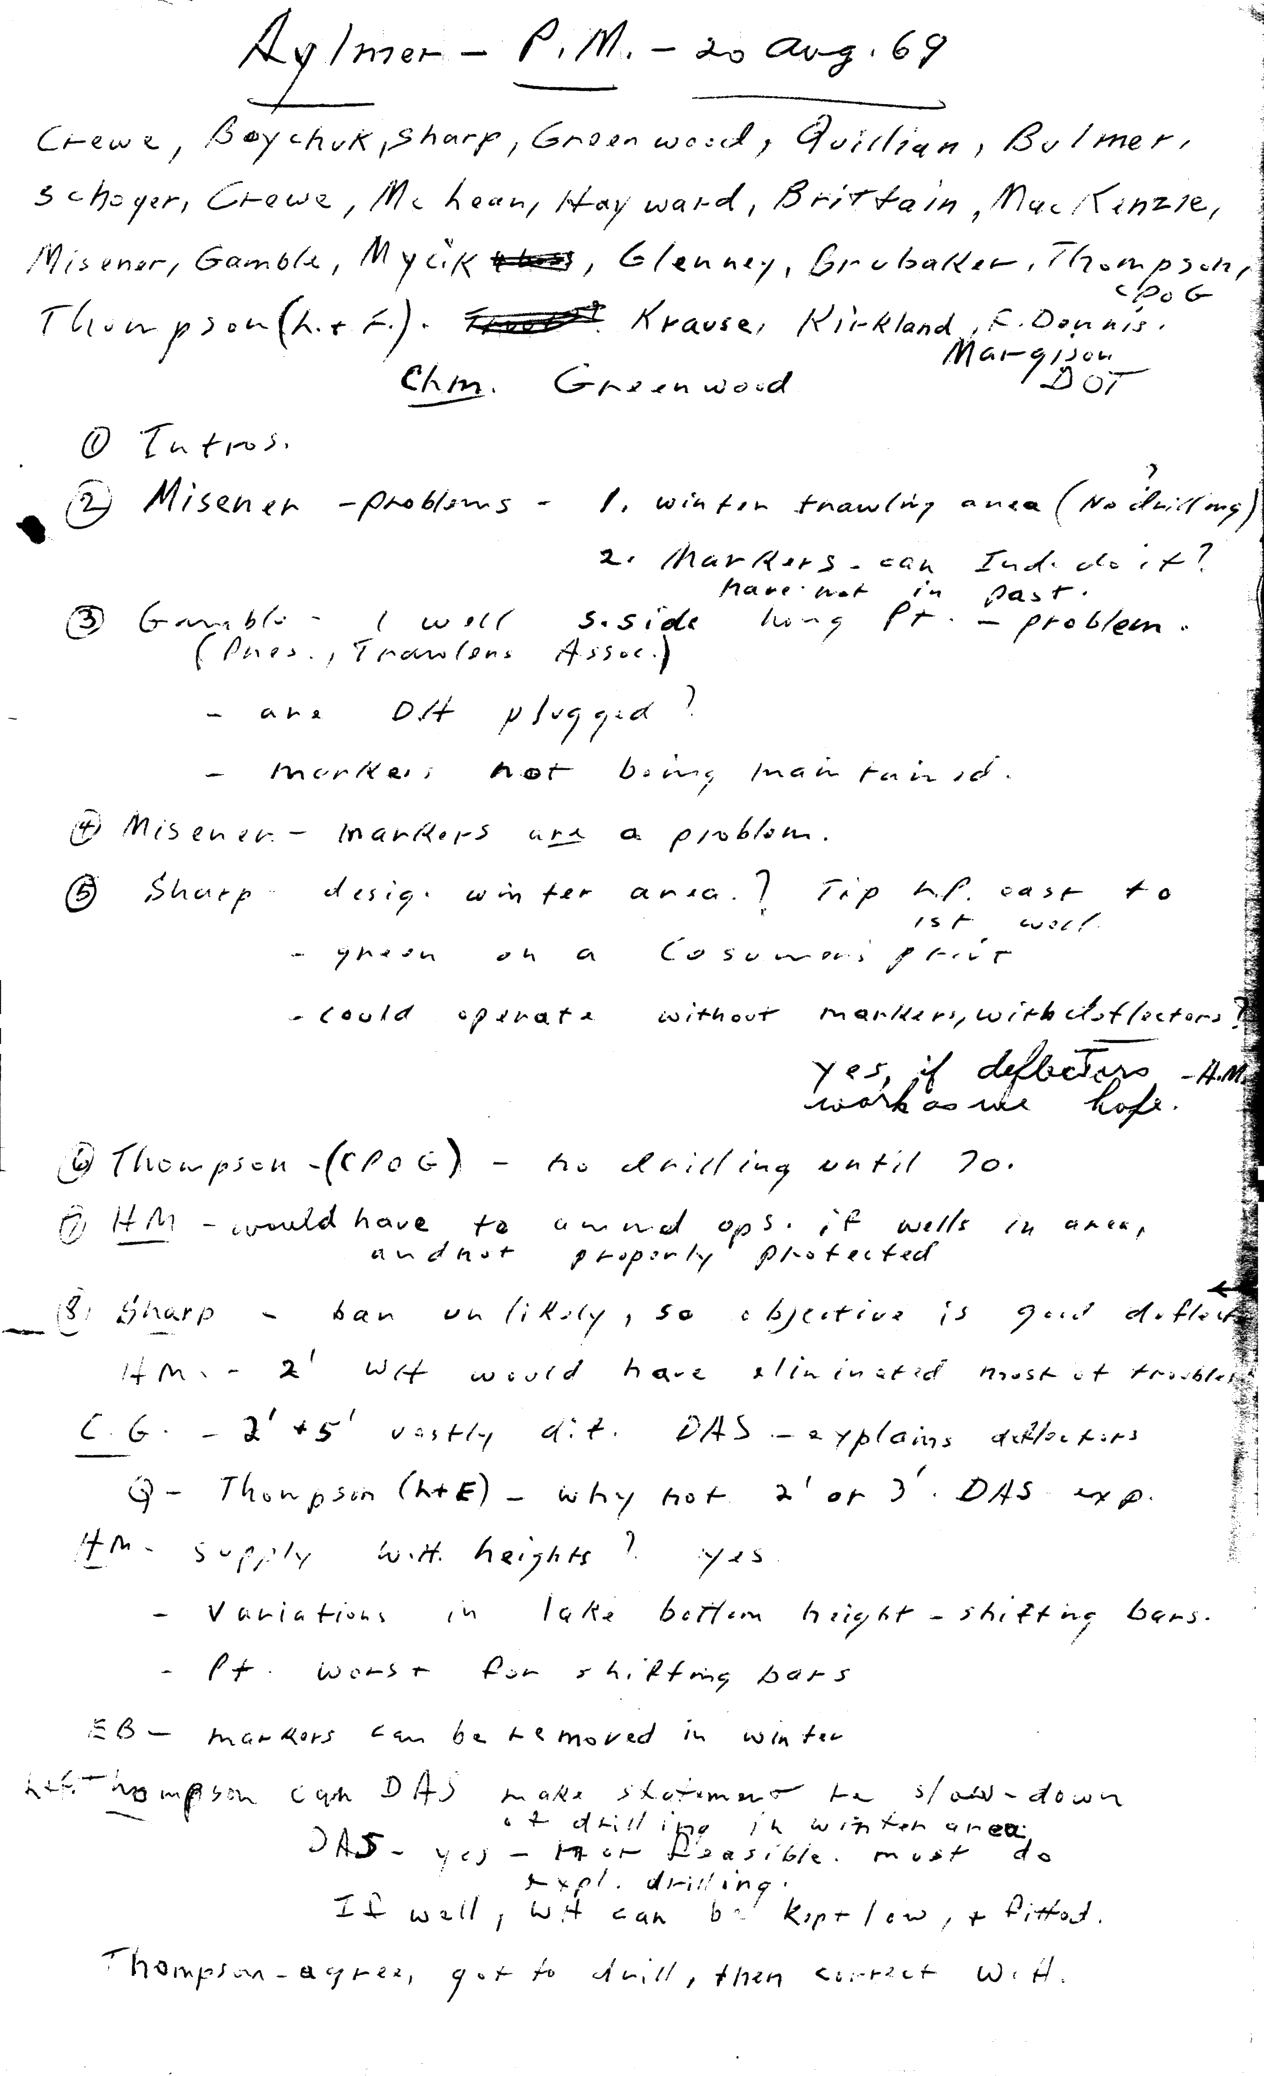 Aylmer - P.M. - 20 Aug. 69
Crewe, Boychuk, Sharp, Greenwood, Quillian, Bulmer,
Schoyer, Crewe, McLean, Hayward, Brittain, MacKenzie,
Misener, Gamble, Mycik, Glenney, Brubaker, Thompson,
CPOG
Thompson (L. + F.). Krause, Kirkland, F. Dennis.
Margison
DOT
Chm. Greenwood
① Intros.
② Misener - problems - 1. winter trawling area (No drilling)?
2. Markers - can Ind. do it?
have not in past.
③ Gamble - 1 well S. side Long Pt. - problem.
(Pres., Trawlers Assoc.)
- are DH plugged?
- markers not being maintained.
④ Misener - markers are a problem.
⑤ Sharp - desig. winter area.? Tip L.P. east to
1st well.
- green on a Cosumers print
- could operate without markers, with deflectors?
yes, if deflectors - H.M.
work as we hope.
⑥ Thompson - (CPOG) - no drilling until 70.
⑦ HM - would have to amend ops. if wells in area,
and not properly protected
⑧ Sharp - ban unlikely, so objective is good deflect
HM. - 2' WH would have eliminated most of troubles
C.G. - 2' + 5' vastly dif. DAS - explains deflectors
Q - Thompson (L+E) - why not 2' or 3'. DAS exp.
HM - supply W.H. heights? yes
- variations in lake bottom height - shifting bars.
- Pt. worst for shifting bars
EB - markers can be removed in winter
L+F. Thompson can DAS make statement re slow-down
of drilling in winter area,
DAS - yes - not feasible. must do
expl. drilling.
If well, WH can be kept low, + fitted.
Thompson - agree, got to drill, then correct W.H.